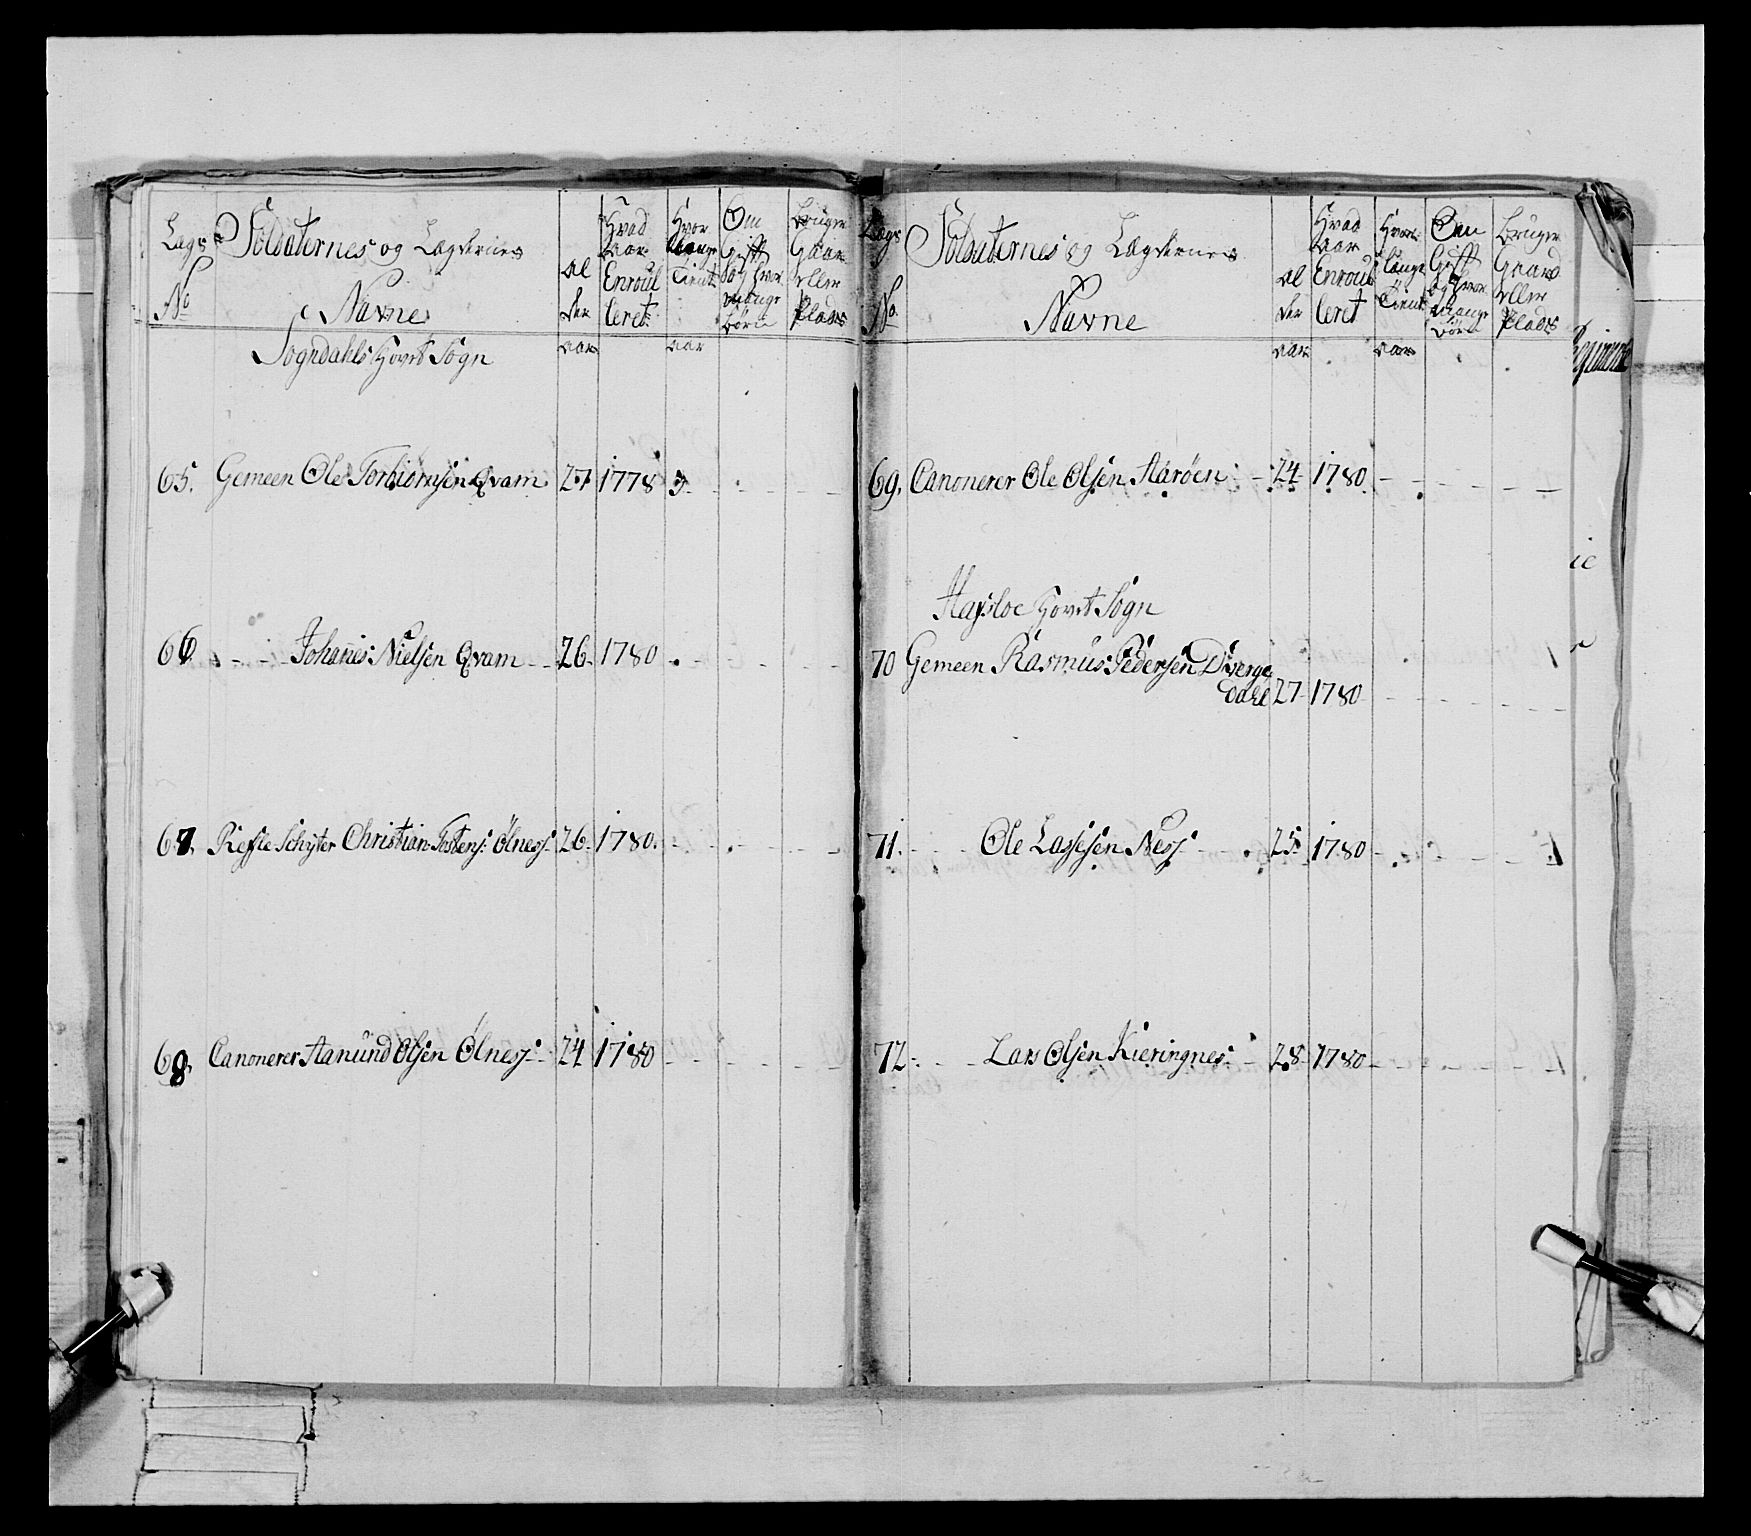 Lægs No
Soldaternes og Lægdernes
Navne
Al
der
Hvad
Aar
Enroul
leret
Hvor
længe
Tient
Om
Gift
og hvor
mange
Børn
Bruger
Gaar
eller
Plads
Sogndahls Hovet Sogn
aar
aar
65. Gemeen Ole Torbiørnsen Qvam 27 1778 3 - - -
66 - - - Johanes Nielsen Qvam - - 26 - 1780 - - - -
67. Refle Schytter Christian Tostens: Ølness - 26 - 1780. - - - -
68. Canonerer Aamund Olsen Ølness - 24 1780 - - - -
Lægs
No.
Soldaternes og Lægdernes
Navne
Al
der
Hvad
Aar
Enroul
leret
Hvor
længe
Tient
Om
Gift
og hvor
mange
Børn
Bruger
Gaard
eller
Plads
aar
aar
69. Canonerer Ole Olsen Aarøen - 24 1780 - - - -
Hafsloe Hovet Sogn
70 Gemeen Rasmus Pedersen Dverge
dahl 27 - 1780 - - - -
71. - - - Ole Lassesen Ness - - 25 1780 - - - -
72 - - - Lars Olsen Kieringnes - 28 - 1780 - - - -